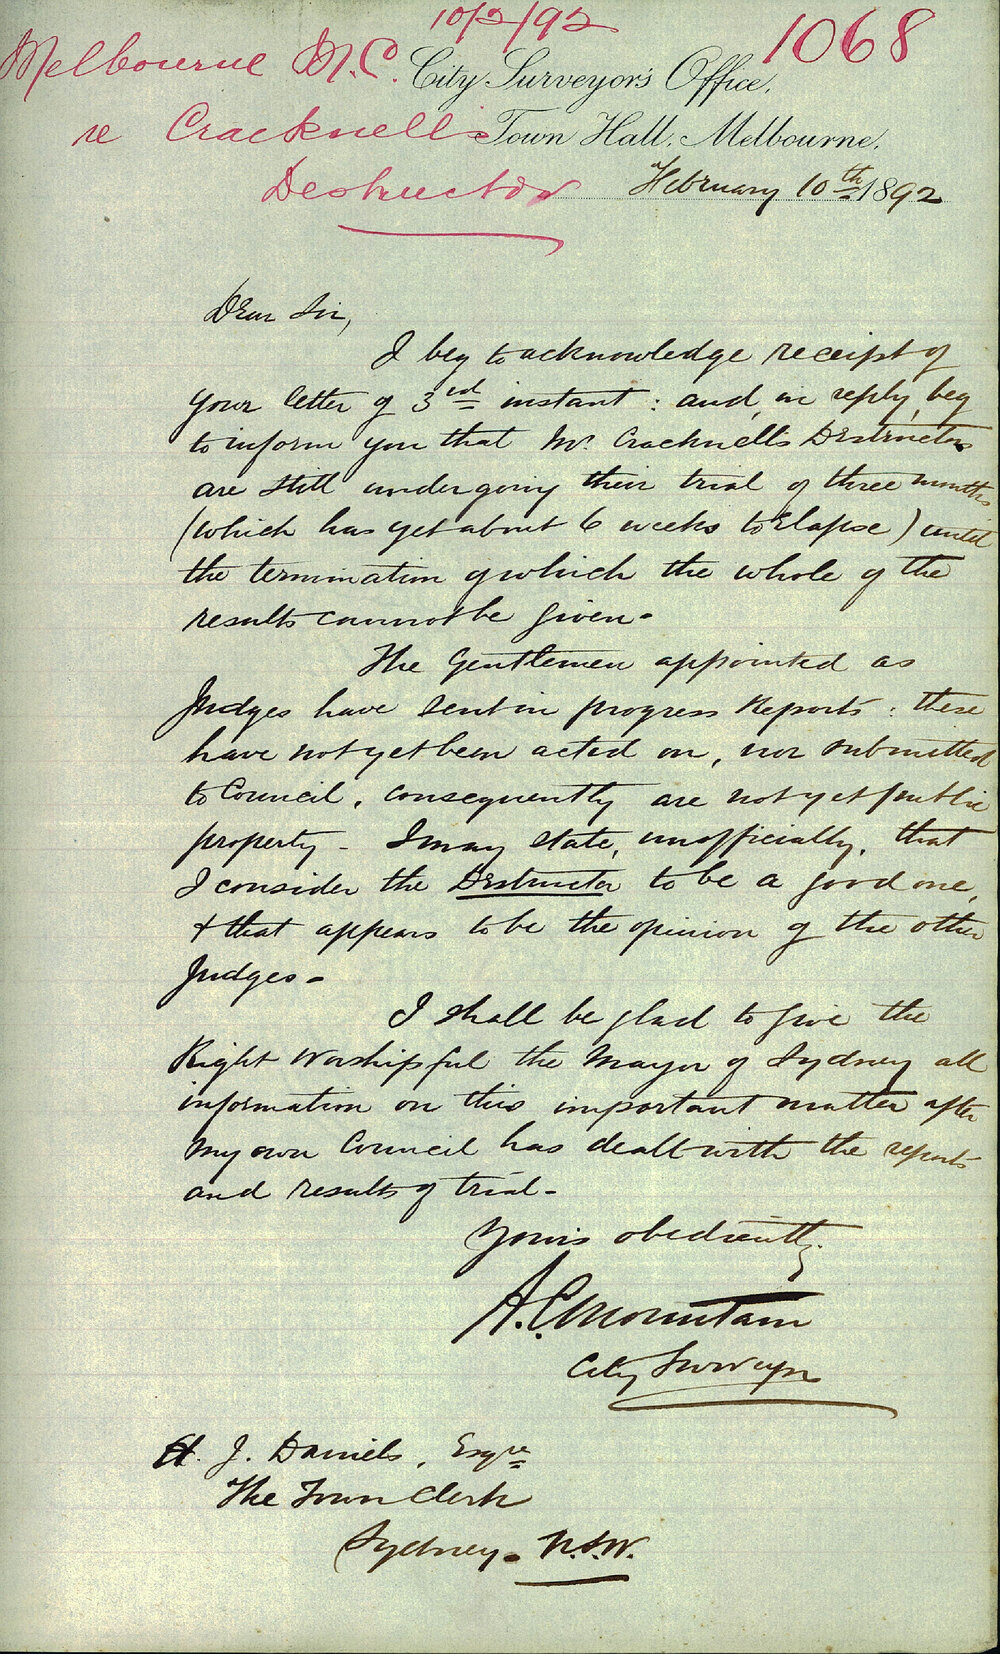 10/2/92
1068
Melbourne M.C.
City Surveyor's Office,
re Cracknell's
Town Hall, Melbourne,
Destructor
February 10th 1892
Dear Sir,
I beg to acknowledge receipt of
your letter of 3rd instant: and, in reply, beg
to inform you that Mr. Cracknell's Destructors
are still undergoing their trial of three months
(which has yet about 6 weeks to elapse) until
the termination of which the whole of the
results cannot be given-
The Gentlemen appointed as
Judges have sent in progress Reports: these
have not yet been acted on, nor submitted
to Council, consequently are not yet public
property - I may state, unofficially, that
I consider the Destructor to be a good one,
& that appears to be the opinion of the other
Judges-
I shall be glad to give the
Right Worshipful the Mayor of Sydney all
information on this important matter after
my own Council has dealt with the reports
and results of trial-
Yours obediently,
A. C. Mountain
City Surveyor
H. J. Daniels, Esqre
The Town Clerk
Sydney. N.S.W.